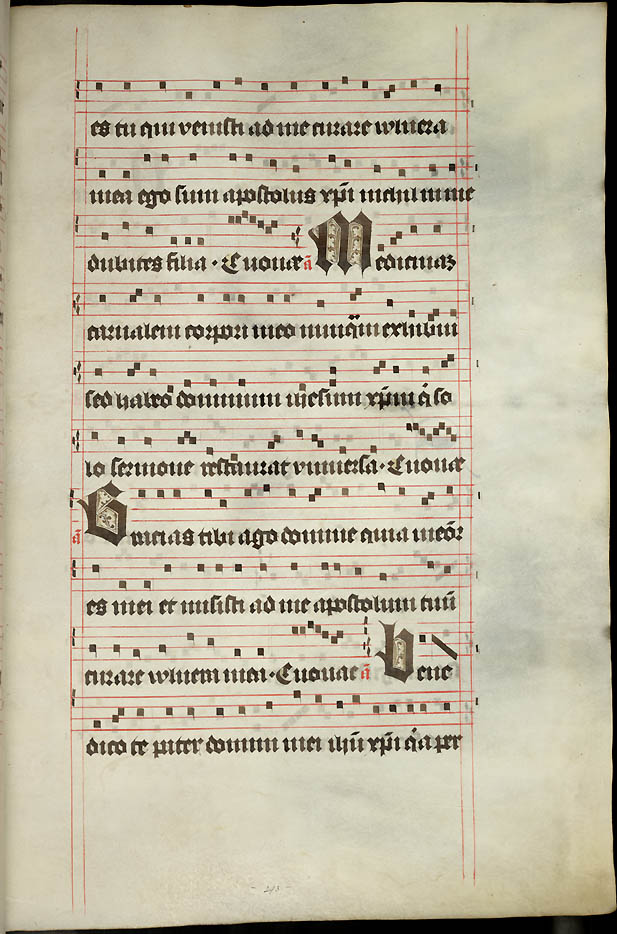 es tu qui venisti ad me curare vulnera
mea ego sum apostolus xp̄i nichil in me
dubites filia · Euouae a̅ Medicinaz
carnalem corpori meo nunq̄m exhibui
sed habeo dominum ihesum xp̄m q̄ so
lo sermone restaurat vniuersa · Euouae
a̅ Gracias tibi ago domine quia meōr
es mei et misisti ad me apostolum tuū
curare vulnera mea · Euouae a̅ Bene
dico te pater domini mei ihū xp̄i q̄a per